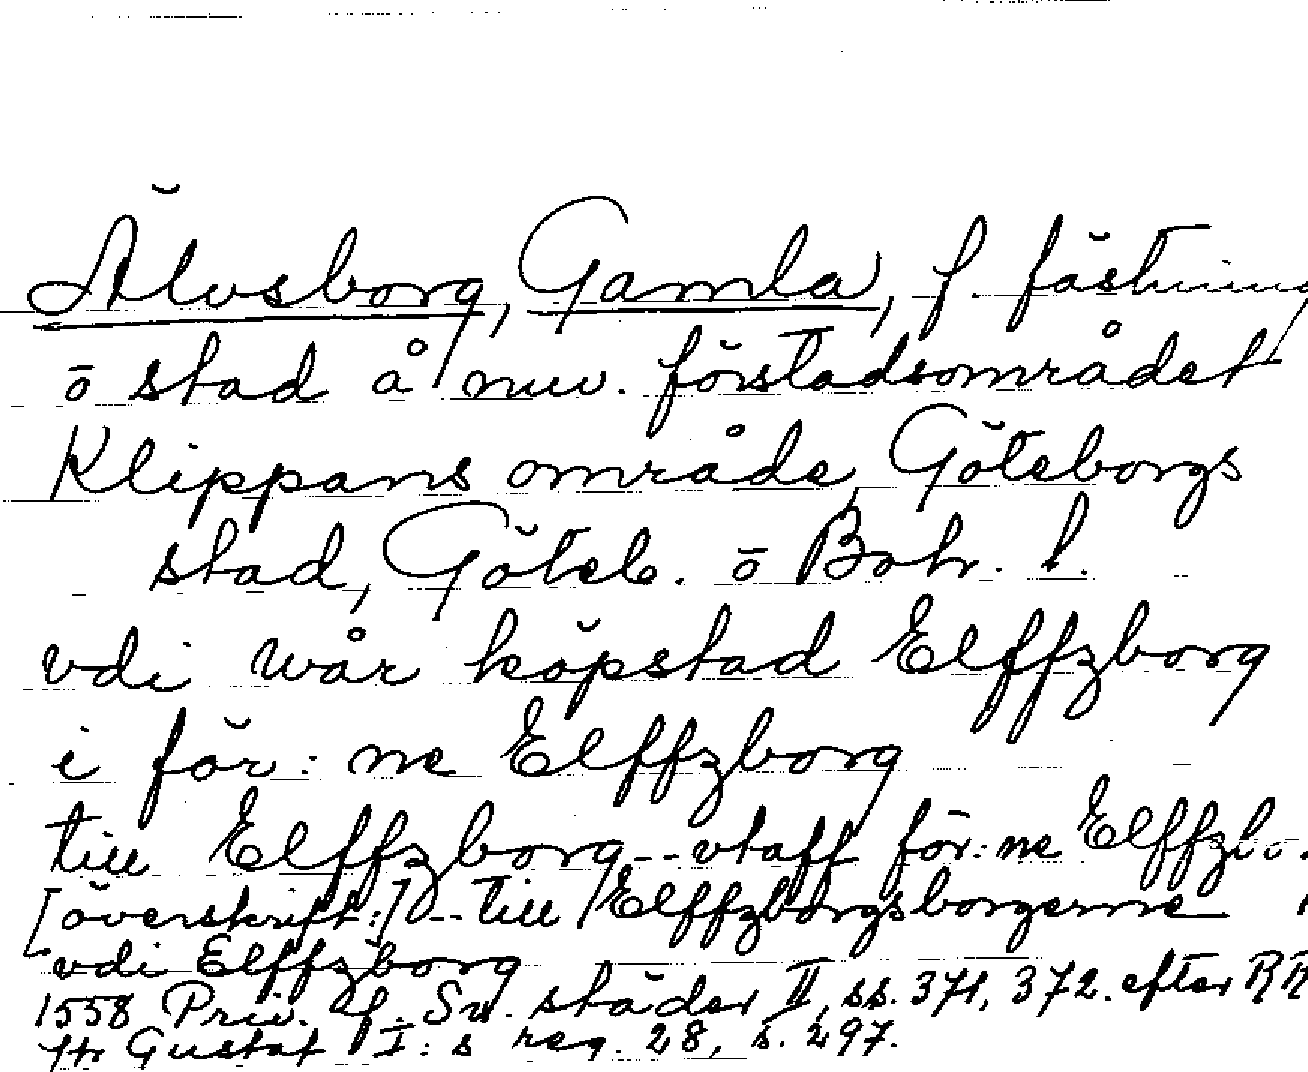 Älvsborg, Gamla, f. fästning
o stad å nuv. förstadsområdet
Klippans område, Göteborgs
stad, Göteb. o Boh. l.
vdi wår köpstad Elffzborg
i för: ne Elffzborg
till Elffzborg -- vtaff för: ne Elffzbo.
[överskrift:] -- till Elffzborgsborgerne
vdi Elffzborg
1558 Priv. f. Sv. städer II, ss. 371, 372. efter RR
Gustaf I: s reg. 28, s. 297.